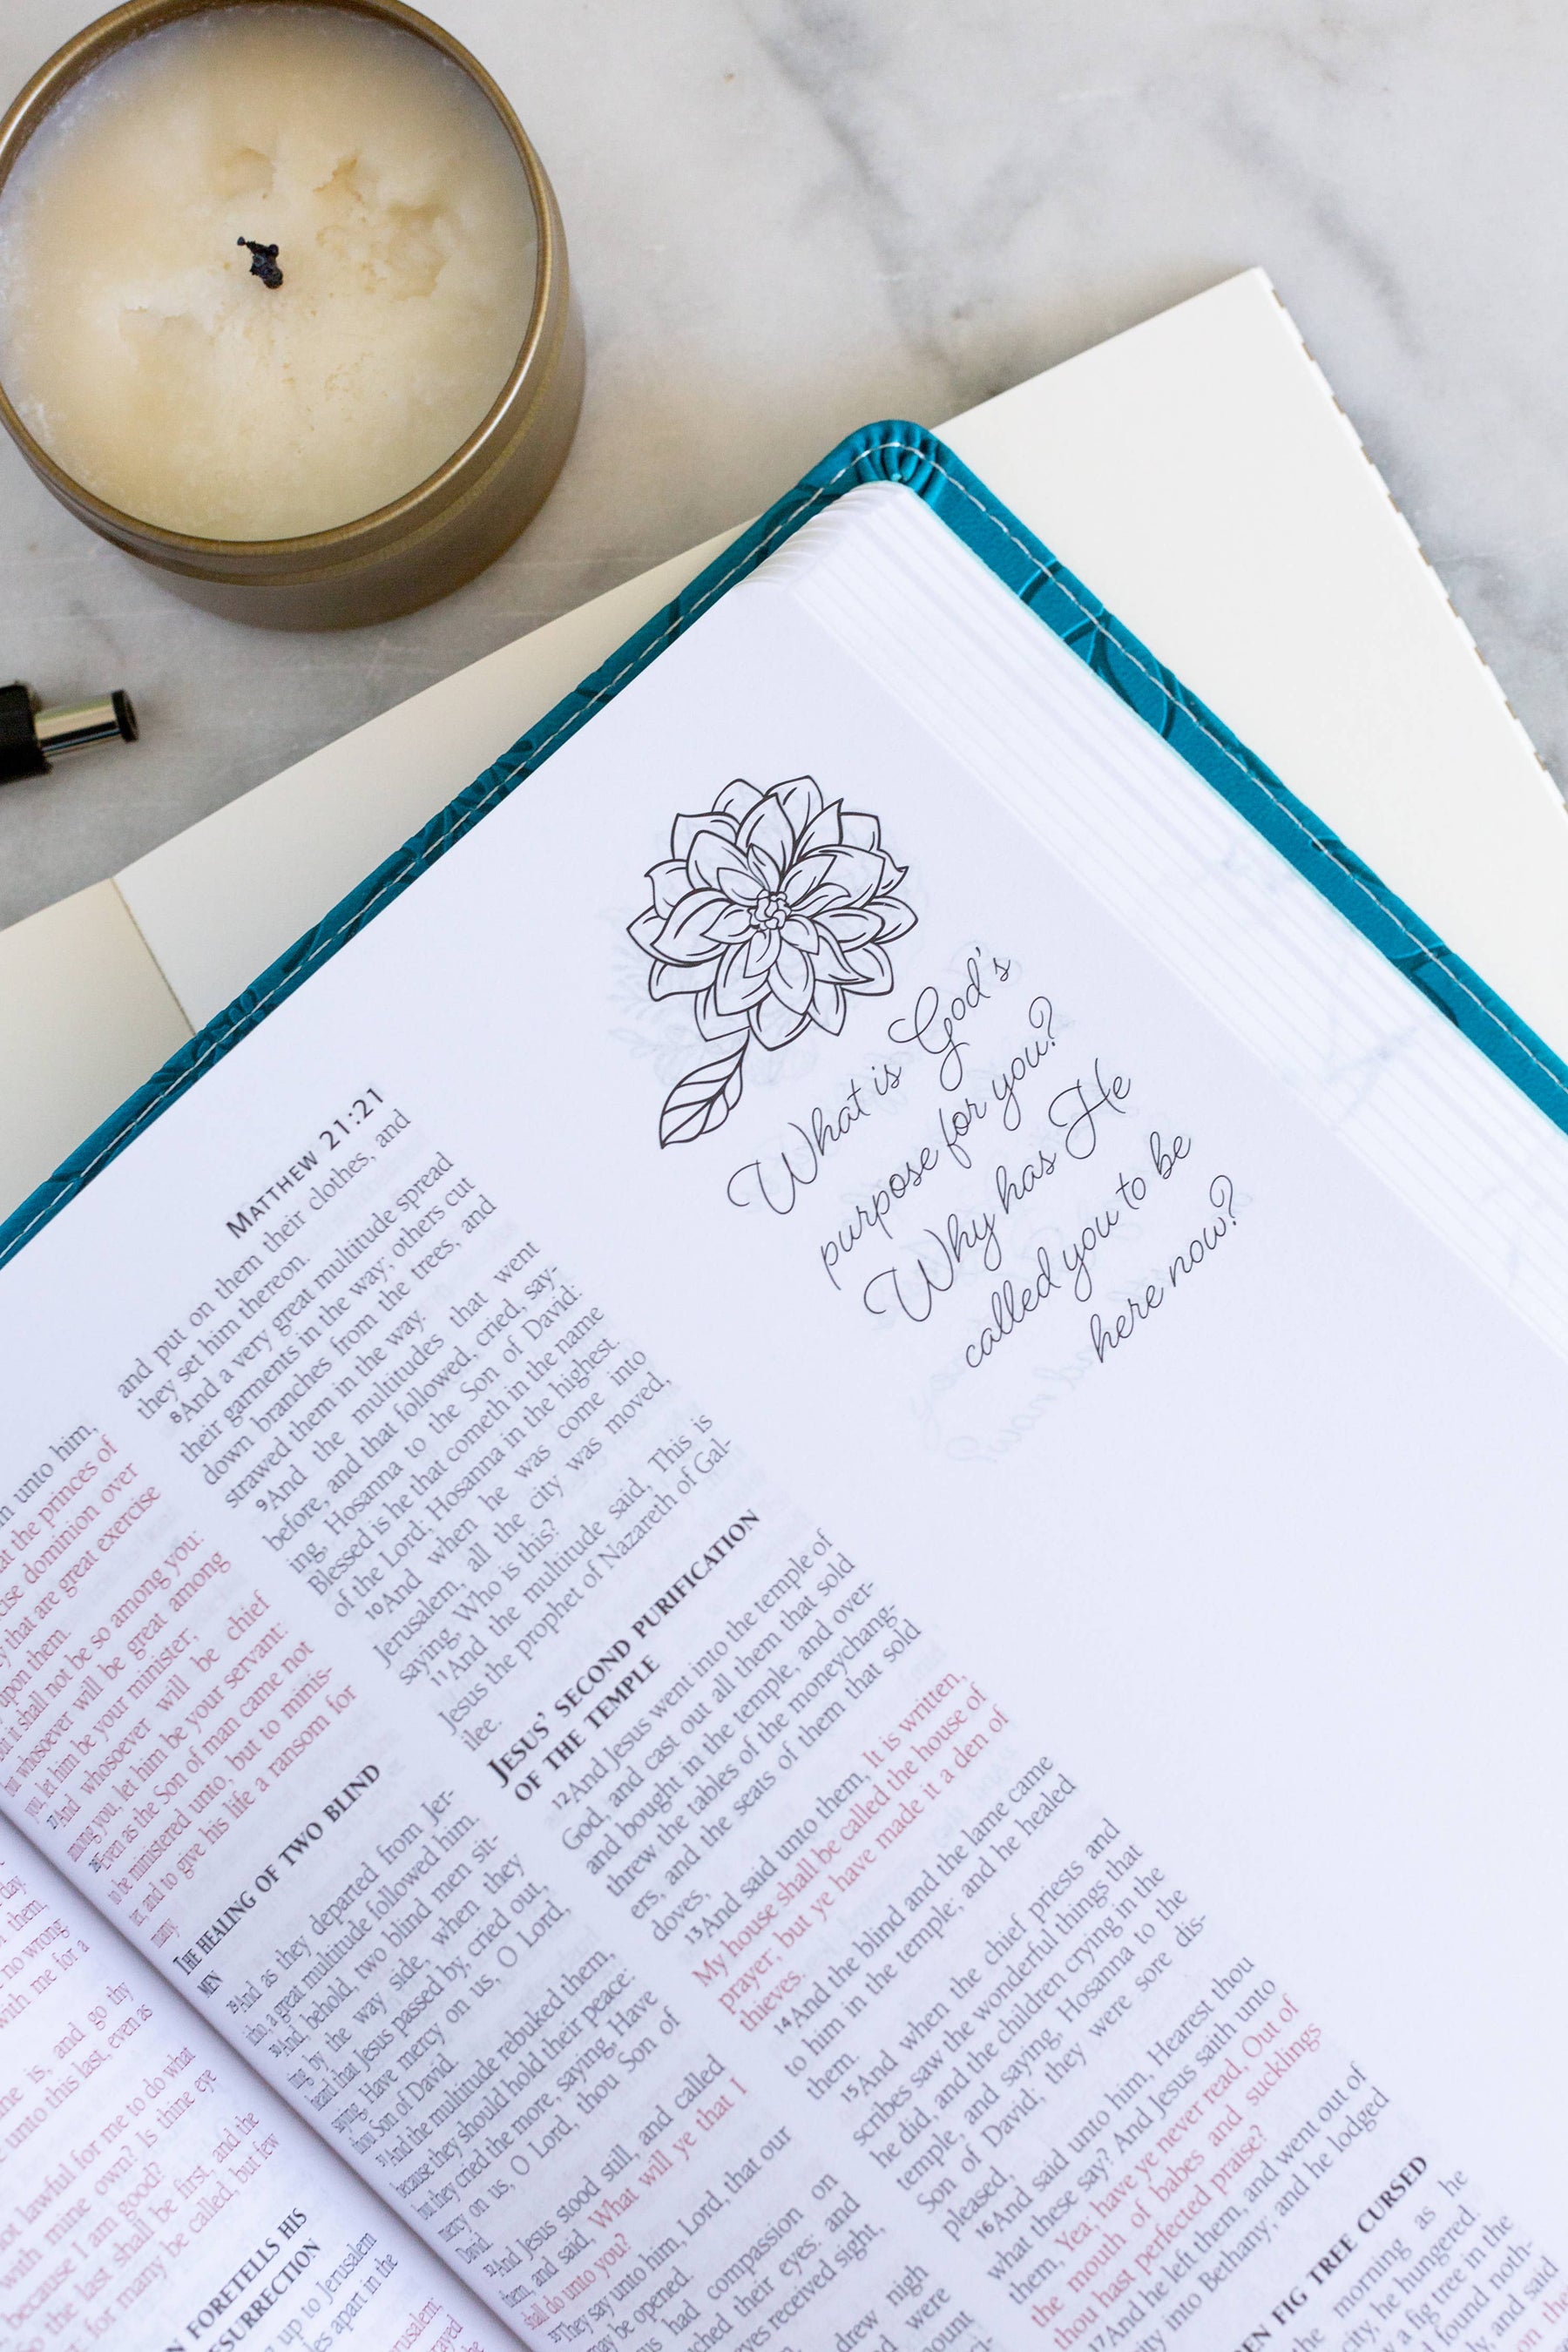 MATTHEW 21:21
What is God's
purpose for you?
Why has He
called you to be
here now?
unto him,
at the princes of
dominion over
that are great exercise
upon them.
it shall not be so among you:
whosoever will be great among
you, let him be your minister;
27And whosoever will be chief
among you, let him be your servant:
28Even as the Son of man came not
to be ministered unto, but to minis-
ter, and to give his life a ransom for
many.
THE HEALING OF TWO BLIND
MEN
29And as they departed from Jer-
icho, a great multitude followed him.
30And, behold, two blind men sit-
ting by the way side, when they
heard that Jesus passed by, cried out,
saying, Have mercy on us, O Lord,
thou Son of David.
31And the multitude rebuked them,
because they should hold their peace:
but they cried the more, saying, Have
mercy on us, O Lord, thou Son of
David.
32And Jesus stood still, and called
them, and said, What will ye that I
shall do unto you?
33They say unto him, Lord, that our
may be opened.
had compassion on
their eyes: and
received sight,
drew nigh
were
and put on them their clothes, and
they set him thereon.
8And a very great multitude spread
their garments in the way; others cut
down branches from the trees, and
strawed them in the way.
9And the multitudes that went
before, and that followed, cried, say-
ing, Hosanna to the Son of David:
Blessed is he that cometh in the name
of the Lord; Hosanna in the highest.
10And when he was come into
Jerusalem, all the city was moved,
saying, Who is this?
11And the multitude said, This is
Jesus the prophet of Nazareth of Gal-
ilee.
JESUS' SECOND PURIFICATION
OF THE TEMPLE
12And Jesus went into the temple of
God, and cast out all them that sold
and bought in the temple, and over-
threw the tables of the moneychang-
ers, and the seats of them that sold
doves,
13And said unto them, It is written,
My house shall be called the house of
prayer; but ye have made it a den of
thieves.
14And the blind and the lame came
to him in the temple; and he healed
them.
15And when the chief priests and
scribes saw the wonderful things that
he did, and the children crying in the
temple, and saying, Hosanna to the
Son of David; they were sore dis-
pleased,
16And said unto him, Hearest thou
what these say? And Jesus saith unto
them, Yea; have ye never read, Out of
the mouth of babes and sucklings
thou hast perfected praise?
17And he left them, and went out of
city into Bethany; and he lodged
FIG TREE CURSED
morning as he
he hungered.
a fig tree in the
found noth-
and said
day.
them,
no wrong
with me for a
is, and go thy
unto this last, even as
lawful for me to do what
with mine own? Is thine eye
because I am good?
the last shall be first, and the
for many be called, but few
FORETELLS HIS
up to Jerusalem
apart in the